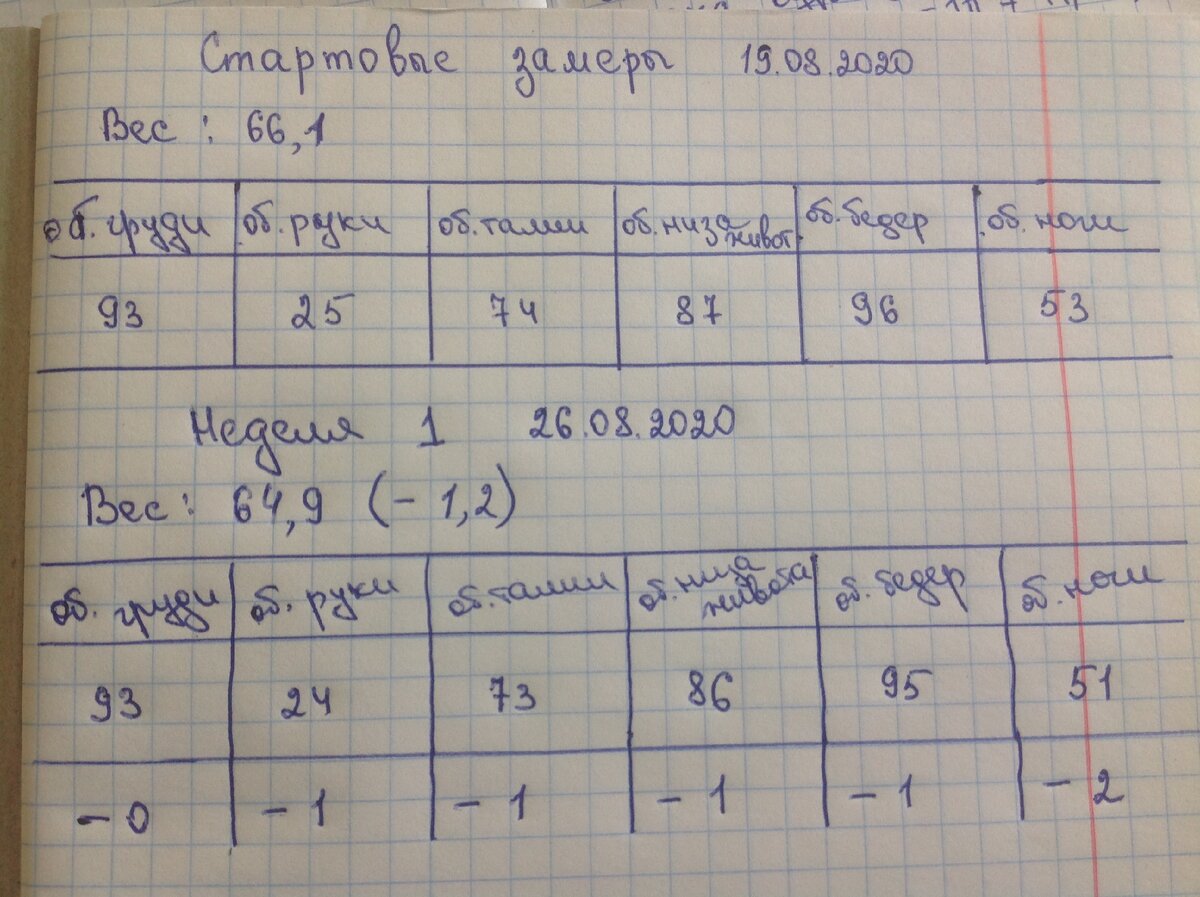 Стартовые замеры 19.08.2020
Вес: 66,1
об. груди об. руки об. талии об. низа живот об. бедер об. ноги
93 25 74 87 96 53
Неделя 1 26.08.2020
Вес: 64,9 (- 1,2)
об. груди об. руки об. талии об. низа живота об. бедер об. ноги
93 24 73 86 95 51
- 0 - 1 - 1 - 1 - 1 - 2